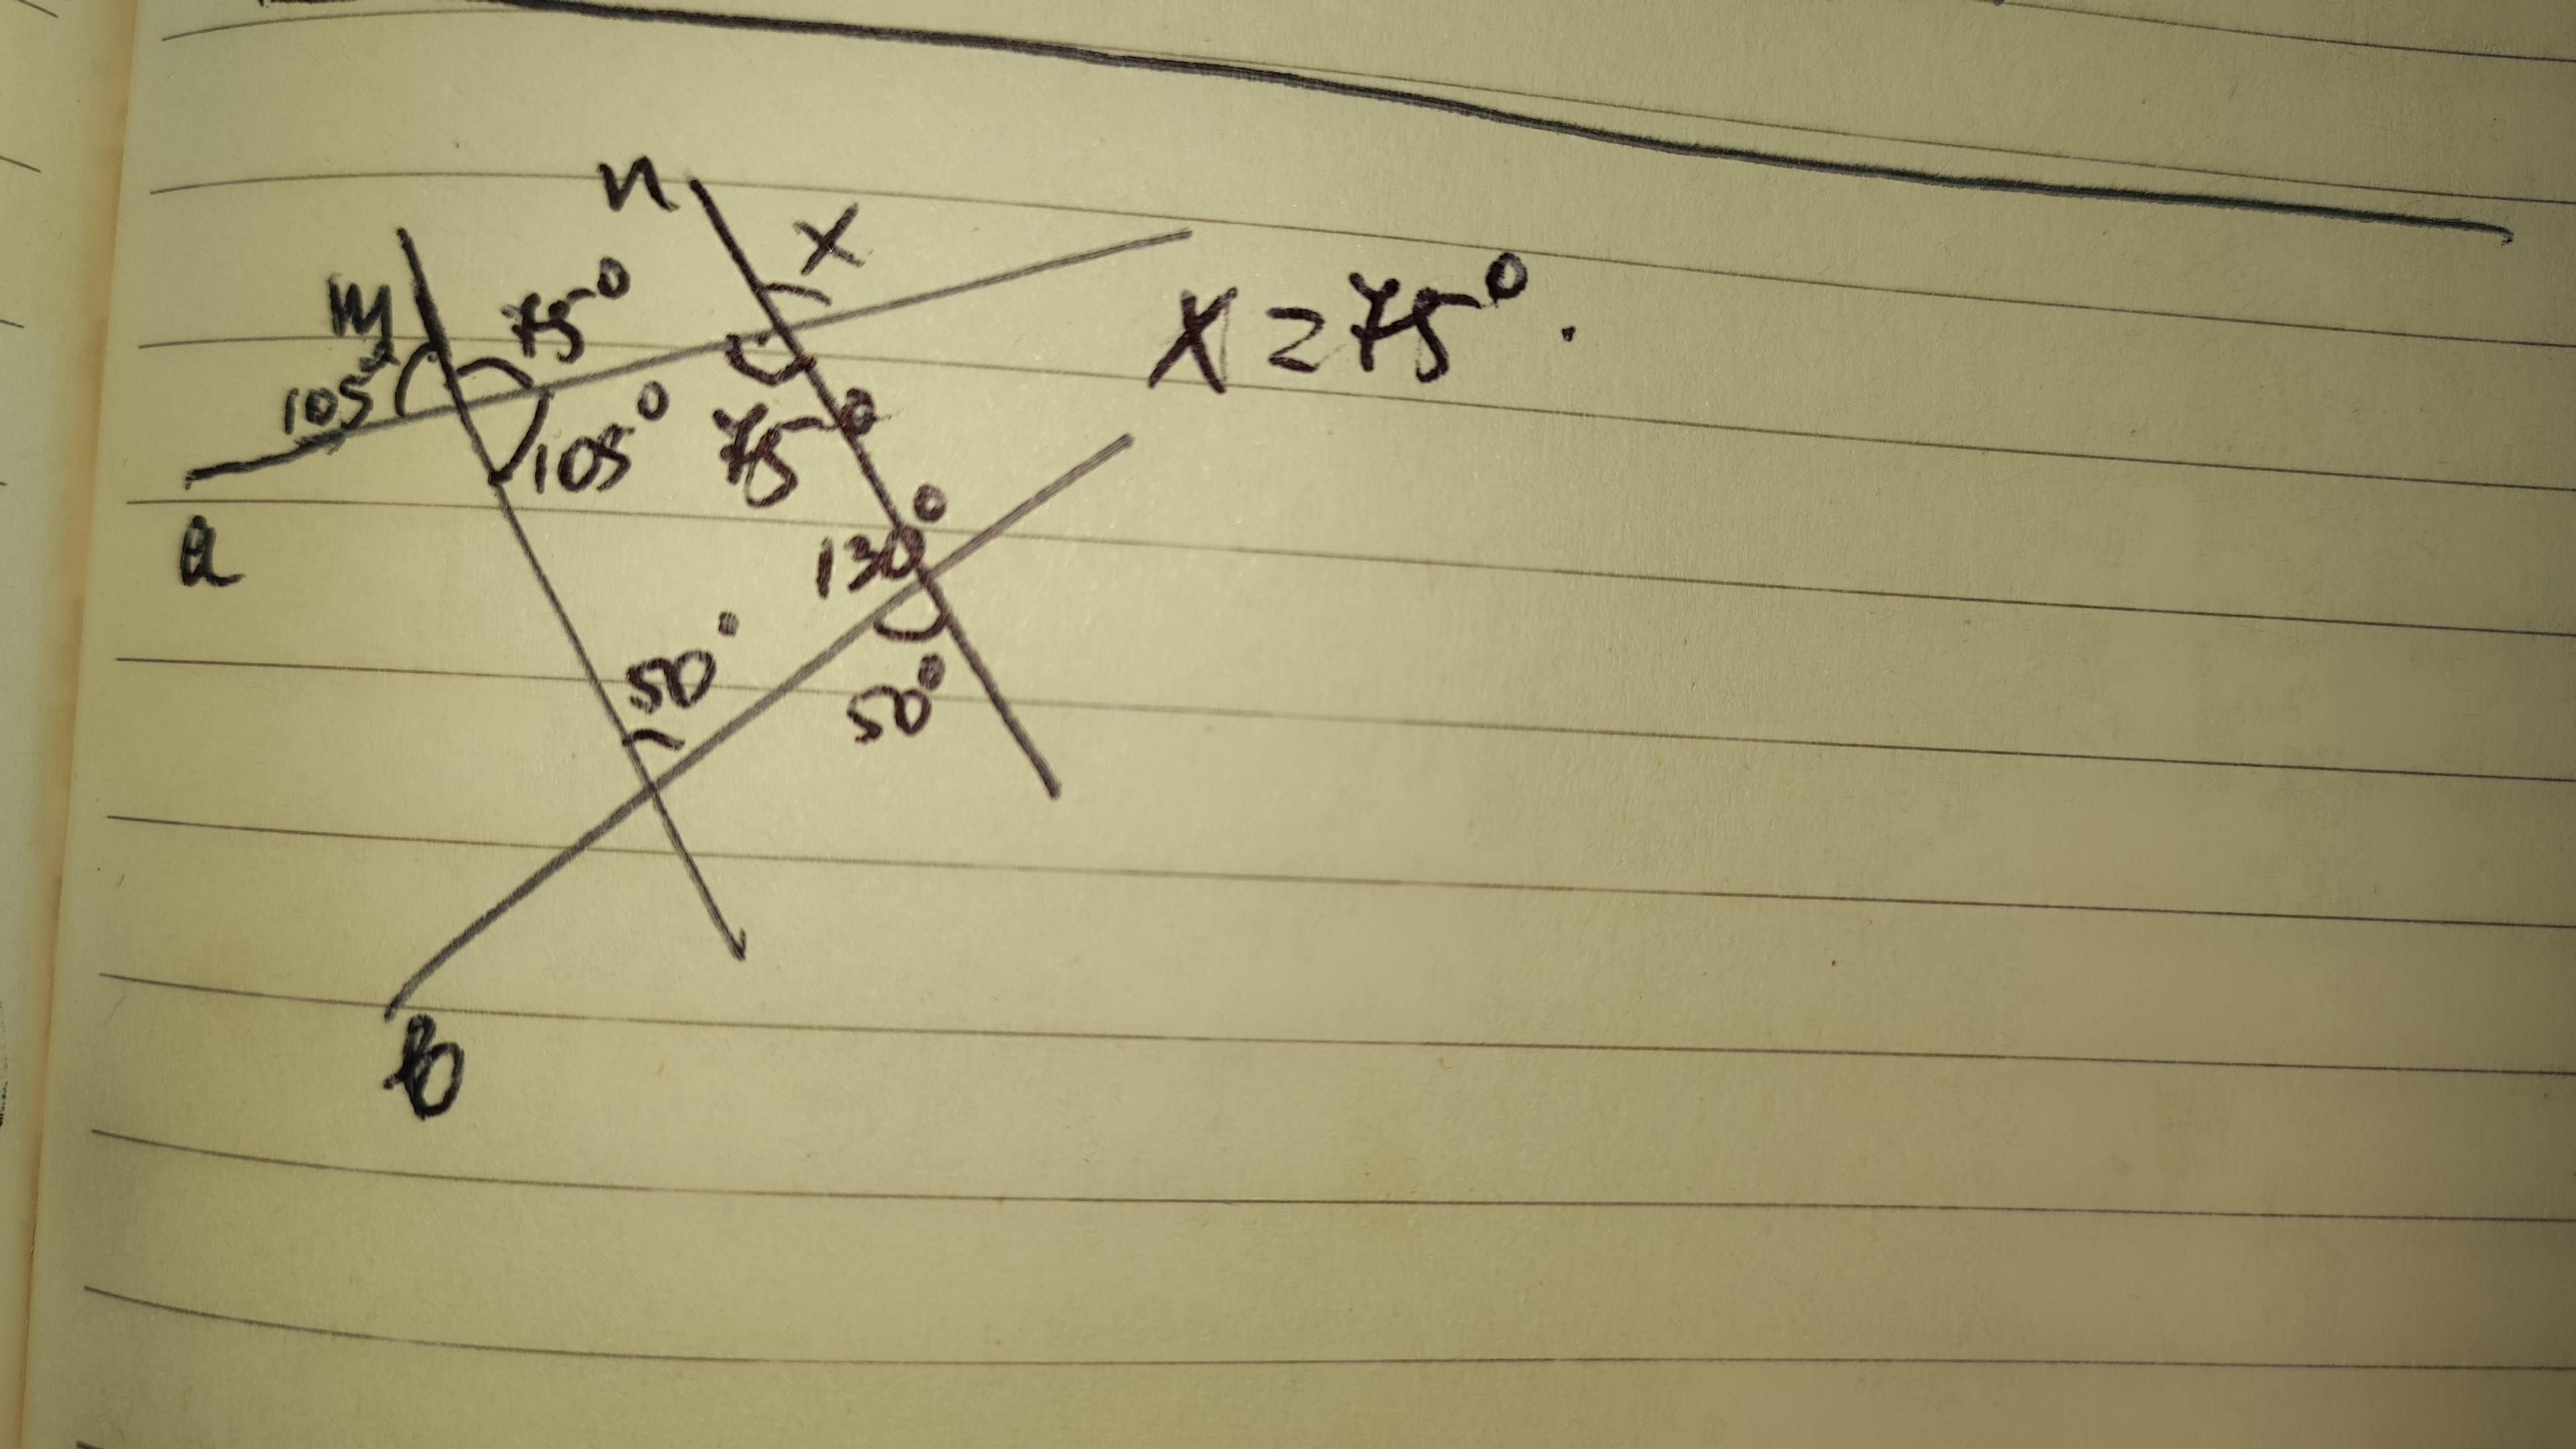 n
x
m
75°
105°
x = 75°.
105°
75°
a
130°
50°
50°
b